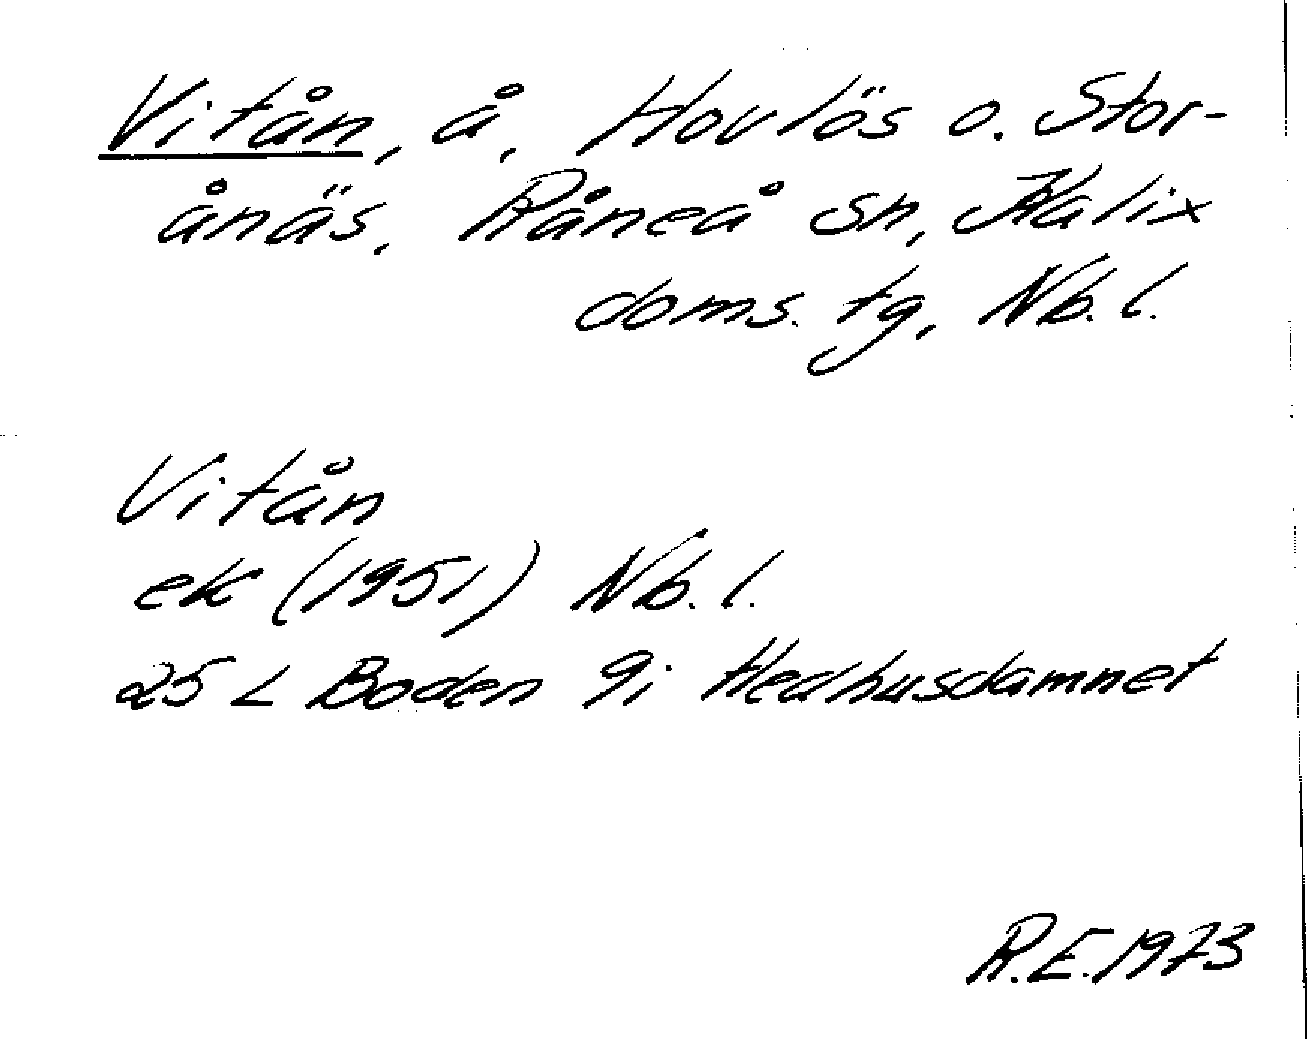 Vitån, å, Hovlös o. Stor-
ånäs, Råneå sn, Kalix
doms. tg, Nb. l.
Vitån
ek (1951) Nb. l.
25 L Boden 9i Hedhusdamnet
R.E. 1973